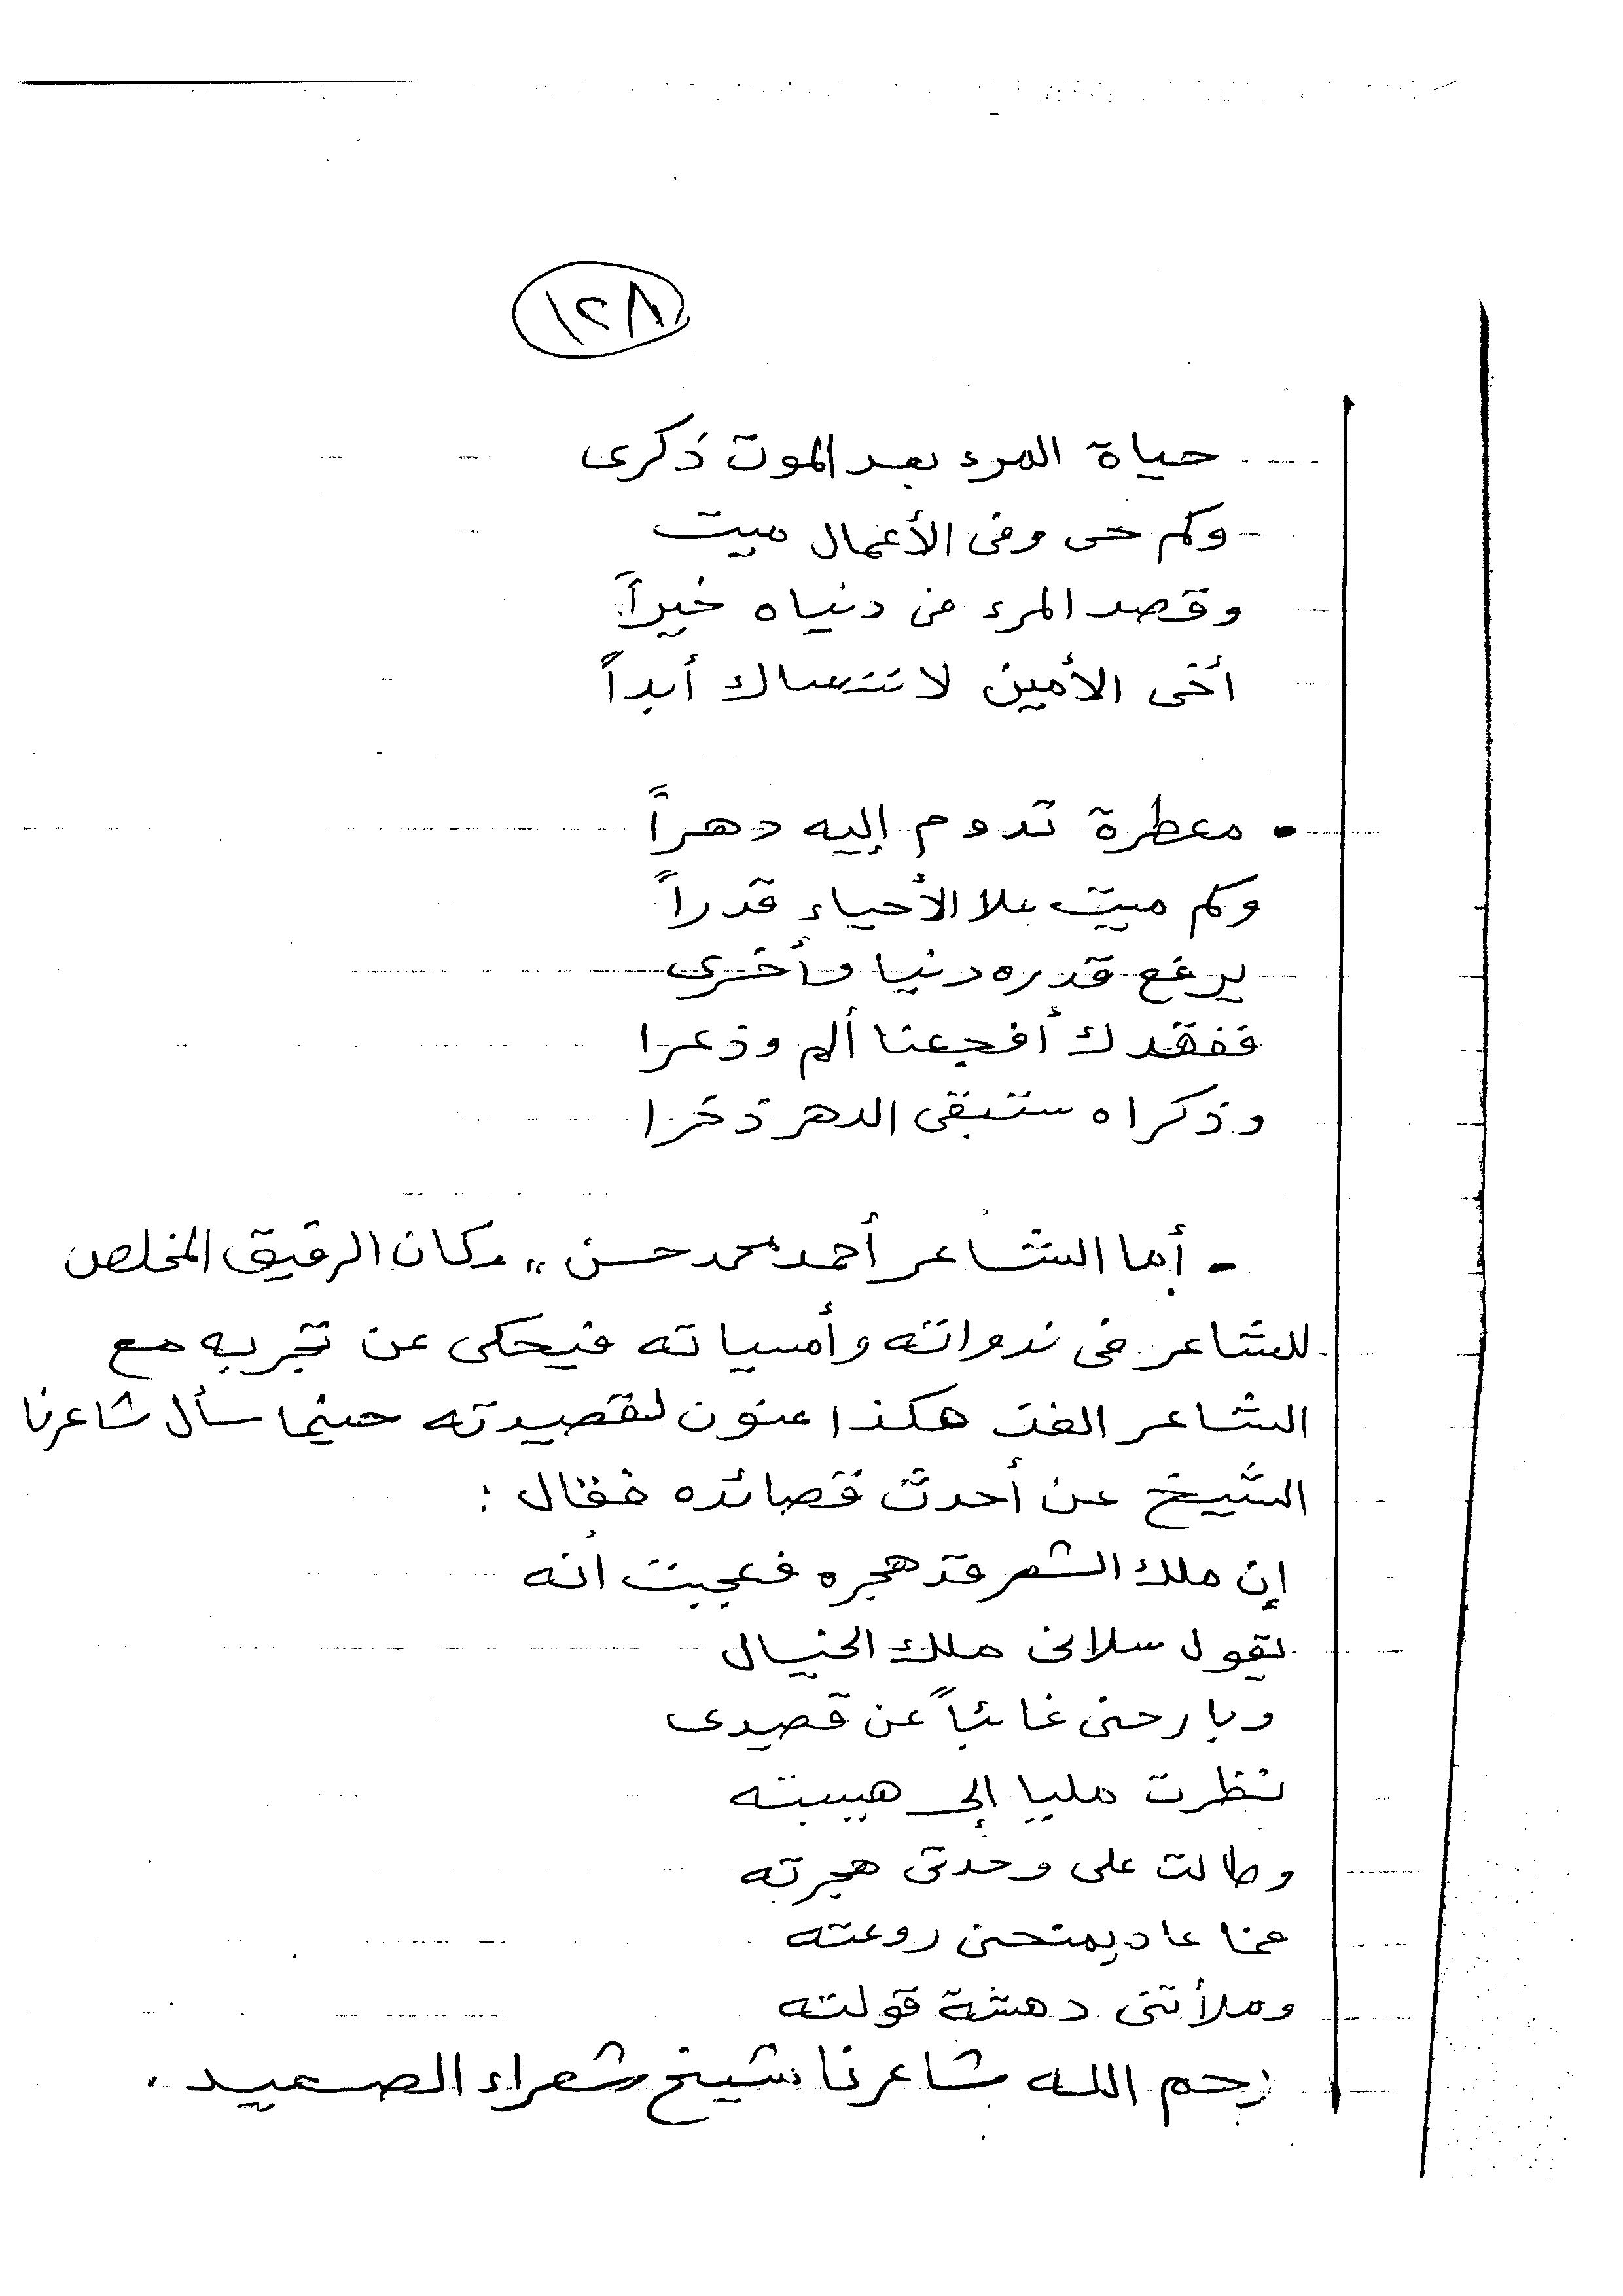 ١٢٨
حياة المرء بعد الموت ذكرى
- وكم حى وفى الأعمال ميت
وقصد المرء من دنياه خيراً
أخى الأمين لا ننساك أبداً
- معطرة تدوم إليه دهراً
وكم ميت علا الأحياء قدراً
يرفع قدره دنيا وأخرى
ففقدك أفجعنا ألم وذعرا
وذكراه ستبقى الدهر ذخرا
- أما الشاعر أحمد محمد حسن ،، فكان الرفيق المخلص
للشاعر فى ندواته وأمسياته فيحكى عن تجربه مع
الشاعر الفت هكذا عنون لقصيدته حينما سأل شاعرنا
الشيخ عن أحدث قصائده فقال :
إن ملك الشعر قد هجره فعجبت أنه
يقول سلانى ملك الخيال
وبارحنى غائباً عن قصيدى
نظرت مليا إلى هيبته
وطالت على وحدتى هجرته
عاد يمنحنى روعته
وملأتنى دهشة قولته
رحم الله شاعرنا شيخ شعراء الصعيد .